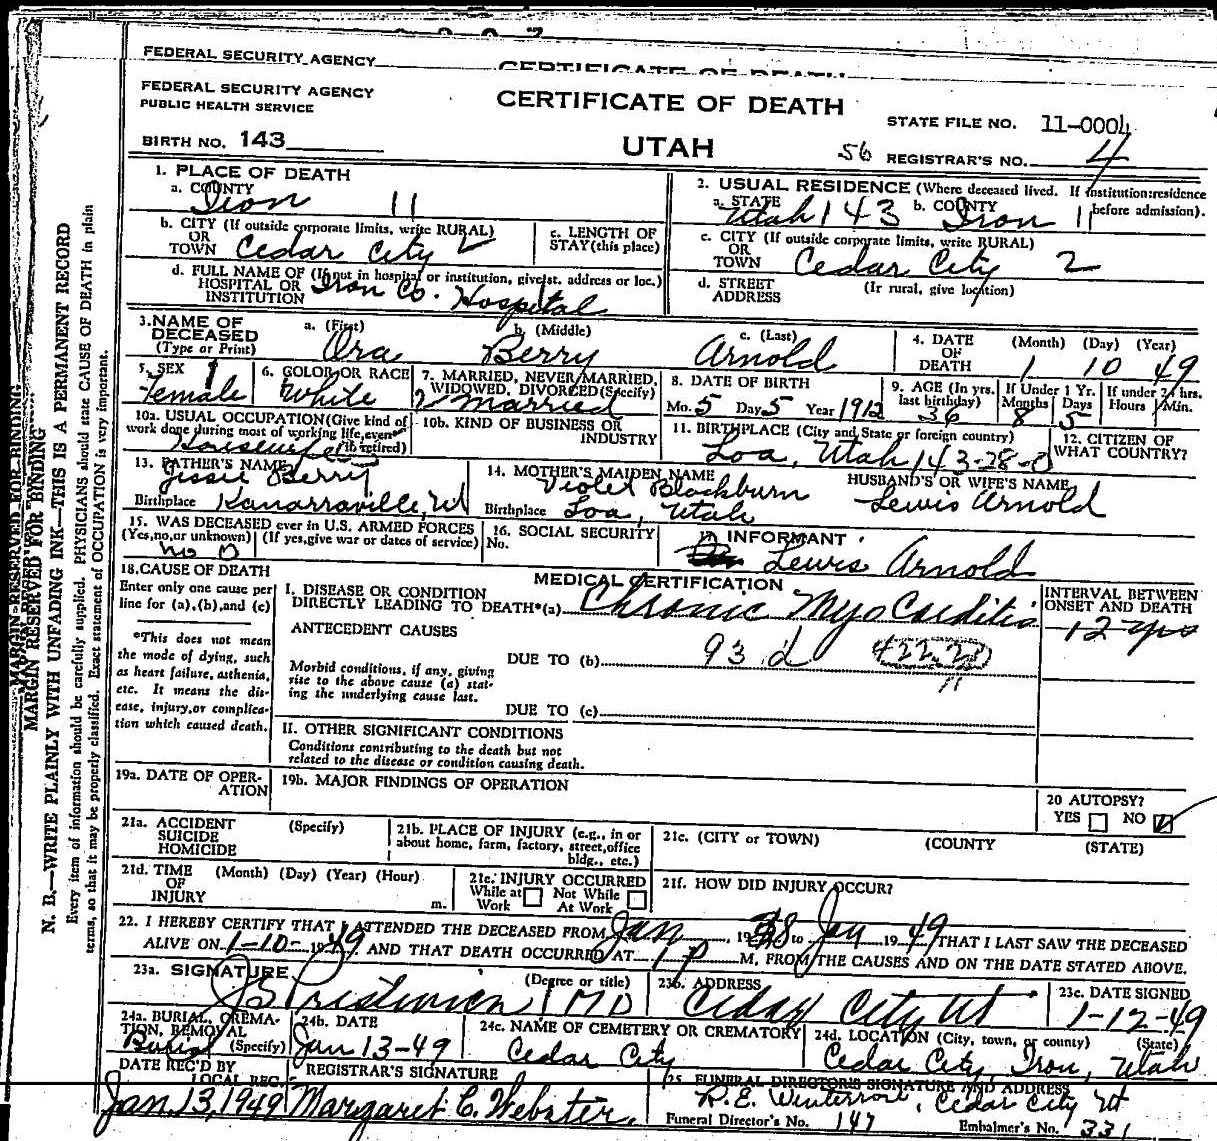 FEDERAL SECURITY AGENCY
CERTIFICATE OF DEATH
FEDERAL SECURITY AGENCY
PUBLIC HEALTH SERVICE
CERTIFICATE OF DEATH
STATE FILE NO. 11-0004
BIRTH NO. 143
UTAH
56 REGISTRAR'S NO. 4
1. PLACE OF DEATH
a. COUNTY
Iron 11
2. USUAL RESIDENCE (Where deceased lived. If institution: residence before admission).
a. STATE Utah 143 b. COUNTY Iron 11
b. CITY (If outside corporate limits, write RURAL)
OR
TOWN Cedar City 2
c. LENGTH OF
STAY (this place)
c. CITY (If outside corporate limits, write RURAL)
OR
TOWN Cedar City 2
d. FULL NAME OF (If not in hospital or institution, give st. address or loc.)
HOSPITAL OR
INSTITUTION Iron Co. Hospital
d. STREET
ADDRESS
(Ir rural, give location)
3. NAME OF
DECEASED
(Type or Print)
a. (First) b. (Middle) c. (Last)
Ora Berry Arnold
4. DATE
OF
DEATH
(Month) (Day) (Year)
1 10 49
5. SEX 1
Female
6. COLOR OR RACE
White
7. MARRIED, NEVER MARRIED,
WIDOWED, DIVORCED (Specify)
2 Married
8. DATE OF BIRTH
Mo. 5 Day 5 Year 1912
9. AGE (In yrs.
last birthday)
36
If Under 1 Yr.
Months Days
8 5
If under 24 hrs.
Hours Min.
10a. USUAL OCCUPATION (Give kind of
work done during most of working life, even
if retired)
Housewife
10b. KIND OF BUSINESS OR
INDUSTRY
11. BIRTHPLACE (City and State or foreign country)
Loa, Utah 143-28-0
12. CITIZEN OF
WHAT COUNTRY?
13. FATHER'S NAME
Jessie Berry
Birthplace Kanarraville, Ut
14. MOTHER'S MAIDEN NAME
Violet Blackburn
Birthplace Loa, Utah
HUSBAND'S OR WIFE'S NAME
Lewis Arnold
15. WAS DECEASED ever in U.S. ARMED FORCES
(Yes, no, or unknown) (If yes, give war or dates of service)
No 0
16. SOCIAL SECURITY
No.
17. INFORMANT
Lewis Arnold
18. CAUSE OF DEATH
Enter only one cause per
line for (a), (b), and (c)
*This does not mean
the mode of dying, such
as heart failure, asthenia,
etc. It means the dis-
ease, injury, or complica-
tion which caused death.
MEDICAL CERTIFICATION
I. DISEASE OR CONDITION
DIRECTLY LEADING TO DEATH*(a) Chronic Myocarditis
INTERVAL BETWEEN
ONSET AND DEATH
12 yrs
ANTECEDENT CAUSES
DUE TO (b) 93 d 422.2
Morbid conditions, if any, giving
rise to the above cause (a) stat-
ing the underlying cause last.
DUE TO (c)
II. OTHER SIGNIFICANT CONDITIONS
Conditions contributing to the death but not
related to the disease or condition causing death.
19a. DATE OF OPER-
ATION
19b. MAJOR FINDINGS OF OPERATION
20 AUTOPSY?
YES NO
21a. ACCIDENT
SUICIDE
HOMICIDE
(Specify)
21b. PLACE OF INJURY (e.g., in or
about home, farm, factory, street, office
bldg., etc.)
21c. (CITY or TOWN) (COUNTY (STATE)
21d. TIME
OF
INJURY
(Month) (Day) (Year) (Hour)
m.
21e. INJURY OCCURRED
While at Work Not While At Work
21f. HOW DID INJURY OCCUR?
22. I HEREBY CERTIFY THAT I ATTENDED THE DECEASED FROM Jan 1938 to Jan 1949 THAT I LAST SAW THE DECEASED
ALIVE ON 1-10-1949 AND THAT DEATH OCCURRED AT 1 P M, FROM THE CAUSES AND ON THE DATE STATED ABOVE.
23a. SIGNATURE (Degree or title)
MD
23b. ADDRESS
Cedar City Ut
23c. DATE SIGNED
1-12-49
24a. BURIAL, CREMA-
TION, REMOVAL
(Specify)
Burial
24b. DATE
Jan 13-49
24c. NAME OF CEMETERY OR CREMATORY
Cedar City
24d. LOCATION (City, town, or county) (State)
Cedar City, Iron, Utah
DATE REC'D BY
LOCAL REG.
Jan. 13, 1949
REGISTRAR'S SIGNATURE
Margaret C. Webster
25. FUNERAL DIRECTOR'S SIGNATURE AND ADDRESS
Cedar City Ut
Funeral Director's No. 147 Embalmer's No. 331
MARGIN RESERVED FOR BINDING
MARGIN RESERVED FOR BINDING
N. B.—WRITE PLAINLY WITH UNFADING INK—THIS IS A PERMANENT RECORD
Every item of information should be carefully supplied. PHYSICIANS should state CAUSE OF DEATH in plain
terms, so that it may be properly classified. Exact statement of OCCUPATION is very important.